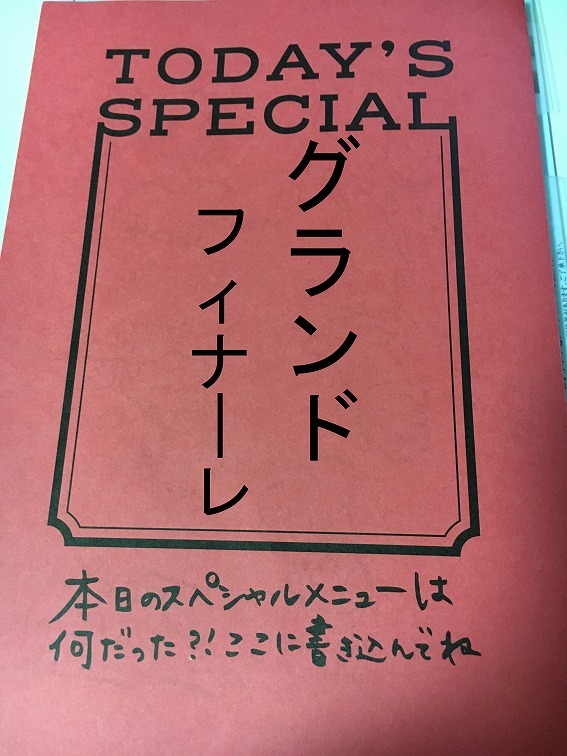 TODAY'S
SPECIAL
グランド
フィナーレ
本日のスペシャルメニューは
何だった?!ここに書き込んでね